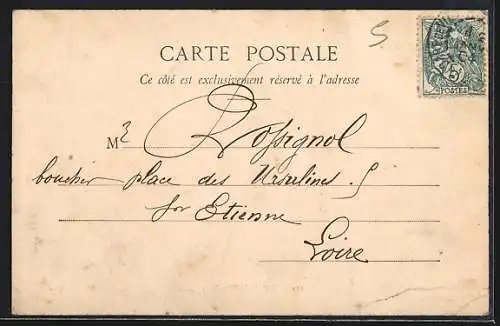 CARTE POSTALE
Ce côté est exclusivement réservé à l'adresse
Mr Rossignol
boucher place des Ursulines. 5
St Etienne
Loire
POSTES